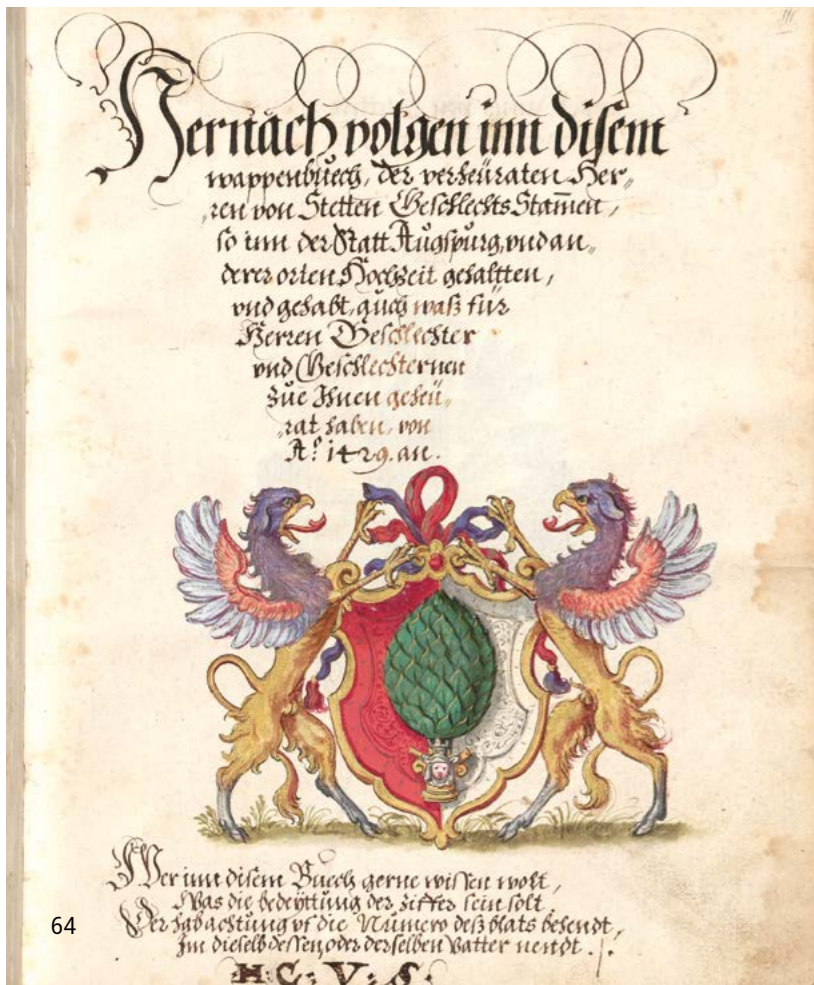 III
Hernach volgen inn disem
wappenbuech, der verheüraten Her„
„ren von Stetten Geschlechts Stam̄en,
so inn der Statt Augspurg, vnd an„
derer orten Hochzeit gehaltten,
vnd gehabt, auch waß für
Herren Geschlechter
vnd Geschlechternen
züe Ihnen geheü„
„rat haben, von
Aº. 1429. an.
Wer inn disem Buech gerne wissen wolt,
Was die bedeÿttung der ziffer sein solt
Der hab achtung vf die Numero deß blats behendt,
Im dieselb dessen, oder derselben Vatter nendt ./.
64
H: C: V: S: